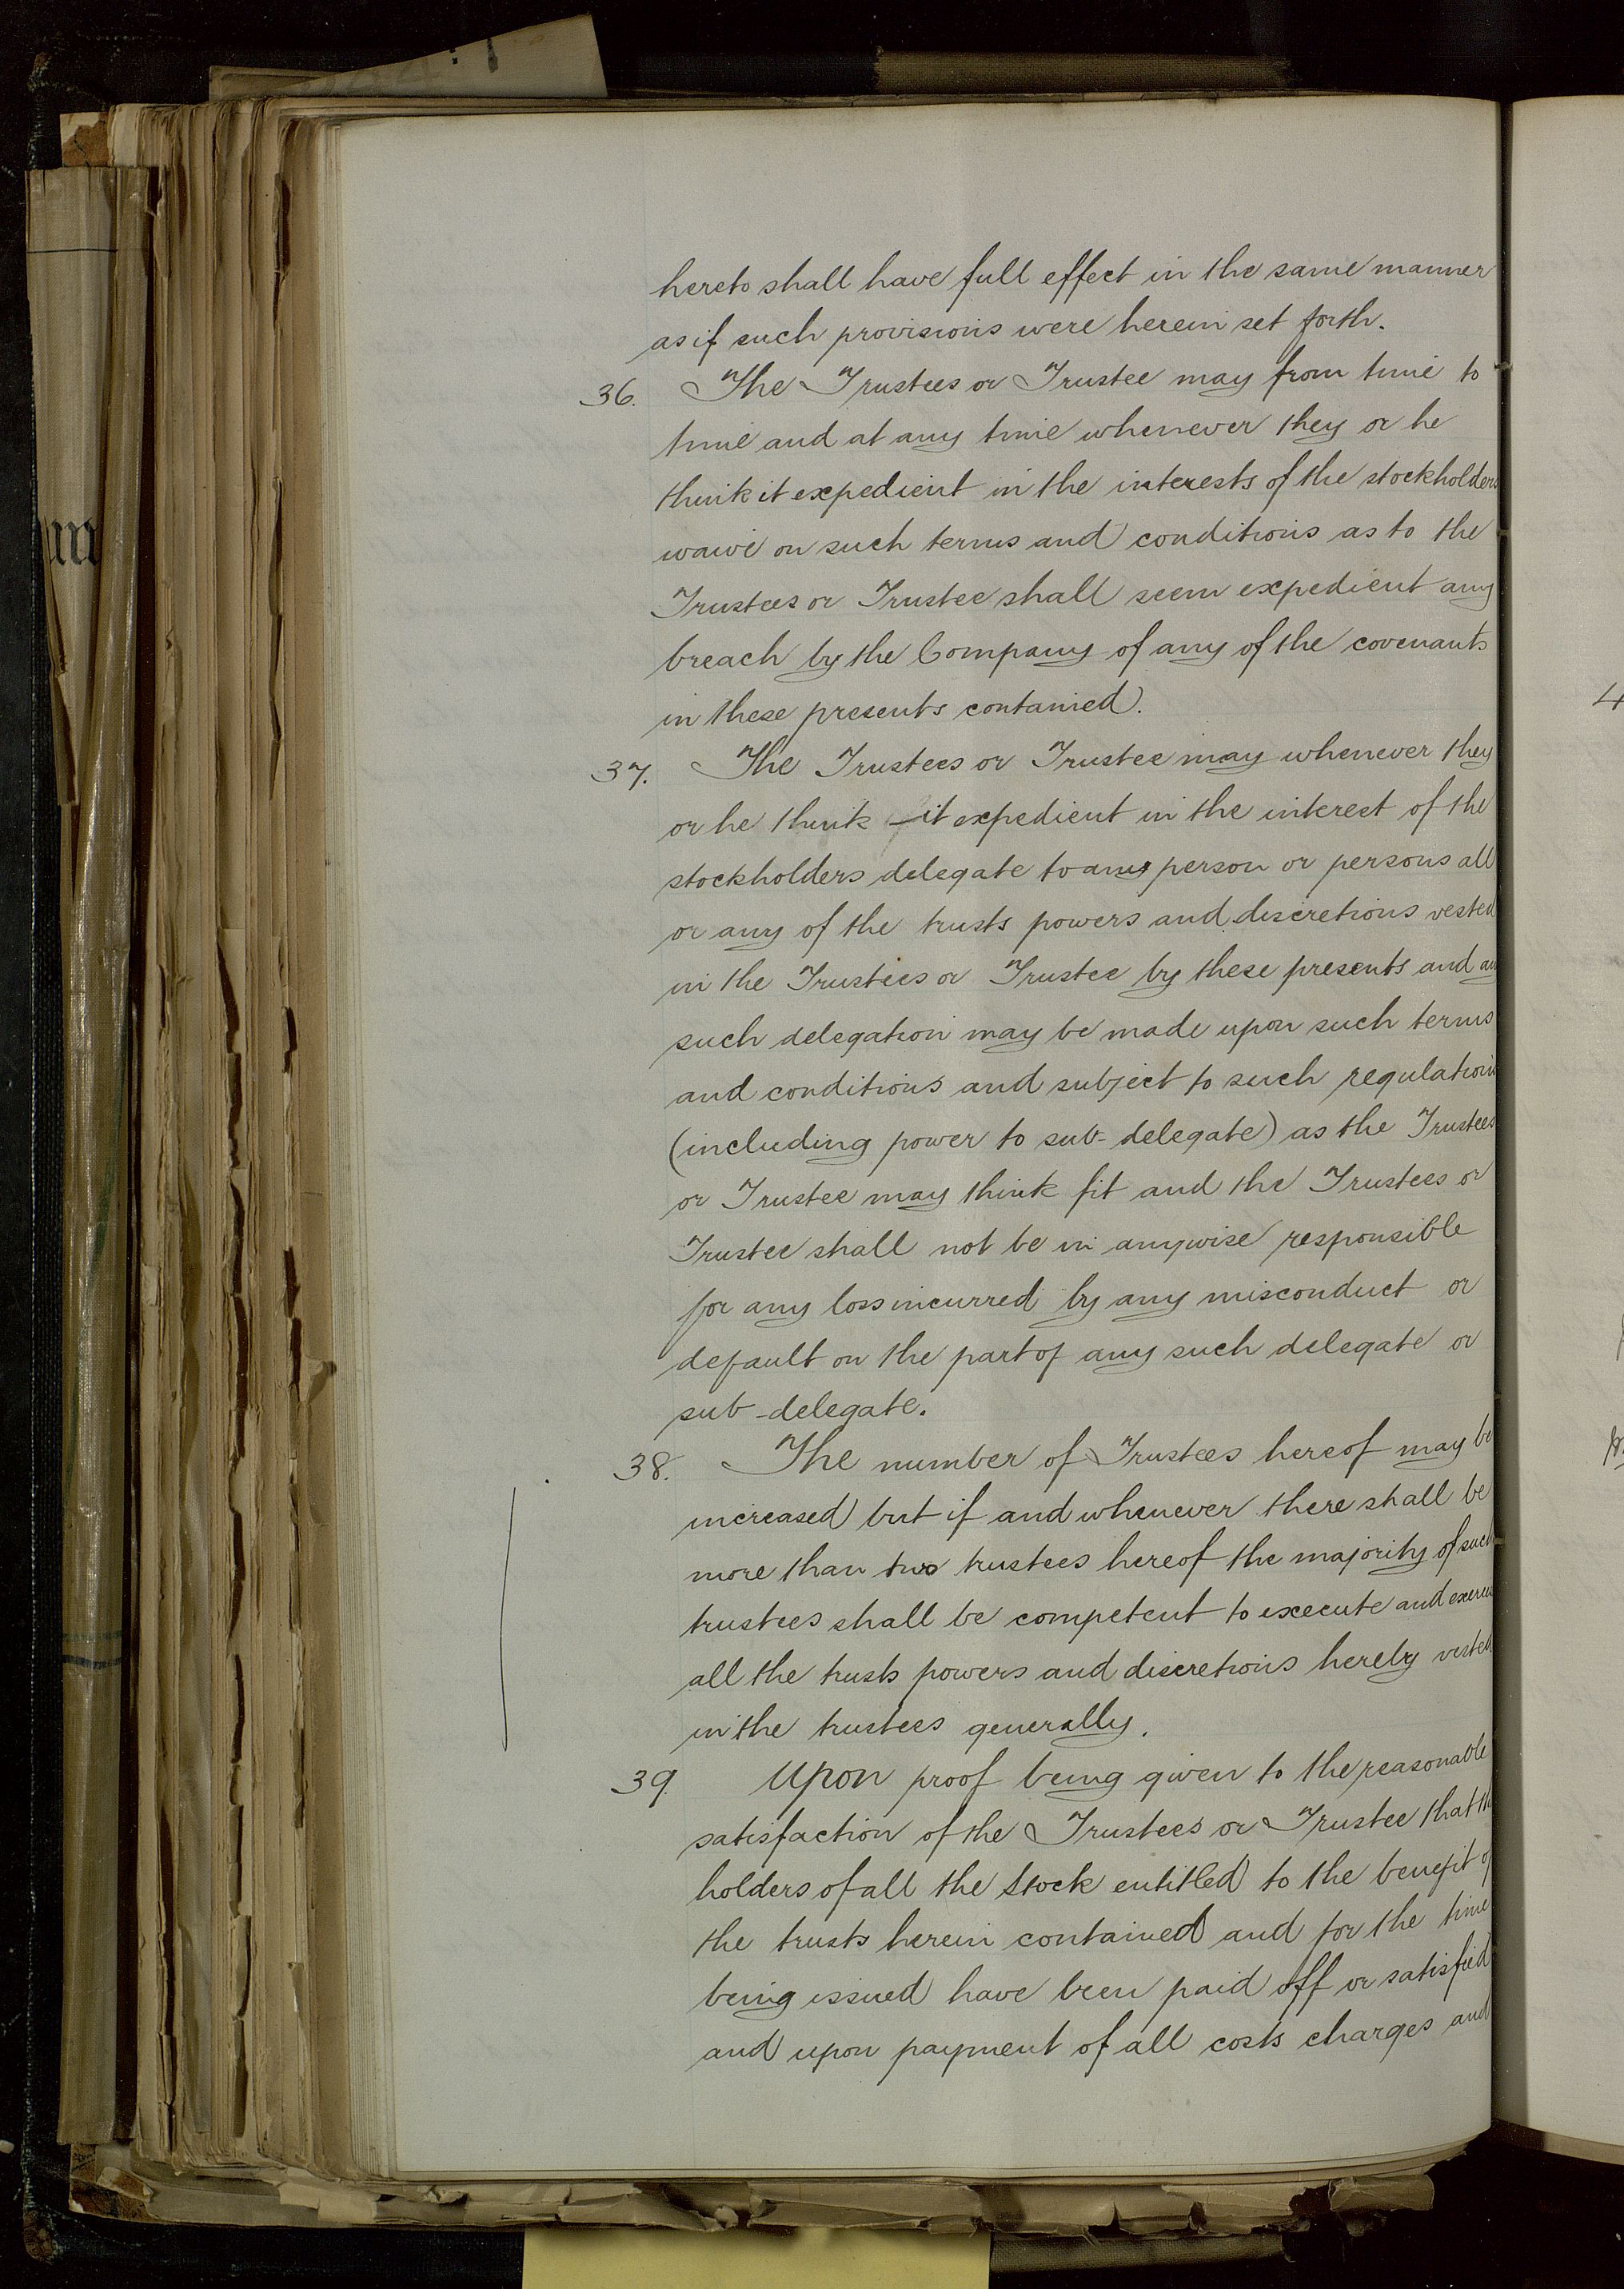 hereto shall have full effect in the same manner
as if such provisions were herein set forth.
36. The Trustees or Trustee may from time to
time and at any time whenever they or he
think it expedient in the interests of the stockholders
waive on such terms and conditions as to the
Trustees or Trustee shall seem expedient any
breach by the Company of any of the covenants
in these presents contained.
37. The Trustees or Trustee may whenever they
or he think it expedient in the interest of the
stockholders delegate to any person or persons all
or any of the trusts powers and discretions vested
in the Trustees or Trustee by these presents and an
such delegation may be made upon such terms
and conditions and subject to such regulations
(including power to sub-delegate) as the Trustees
or Trustee may think fit and the Trustees or
Trustee shall not be in anywise responsible
for any loss incurred by any misconduct or
default on the part of any such delegate or
sub-delegate.
38. The number of Trustees hereof may be
increased but if and whenever there shall be
more than two trustees hereof the majority of such
trustees shall be competent to execute and
all the trusts powers and discretions hereby vested
in the trustees generally.
39. Upon proof being given to the reasonable
satisfaction of the Trustees or Trustee that the
holders of all the Stock entitled to the benefit of
the trusts herein contained and for the time
being issued have been paid off or satisfied
and upon payment of all costs charges and